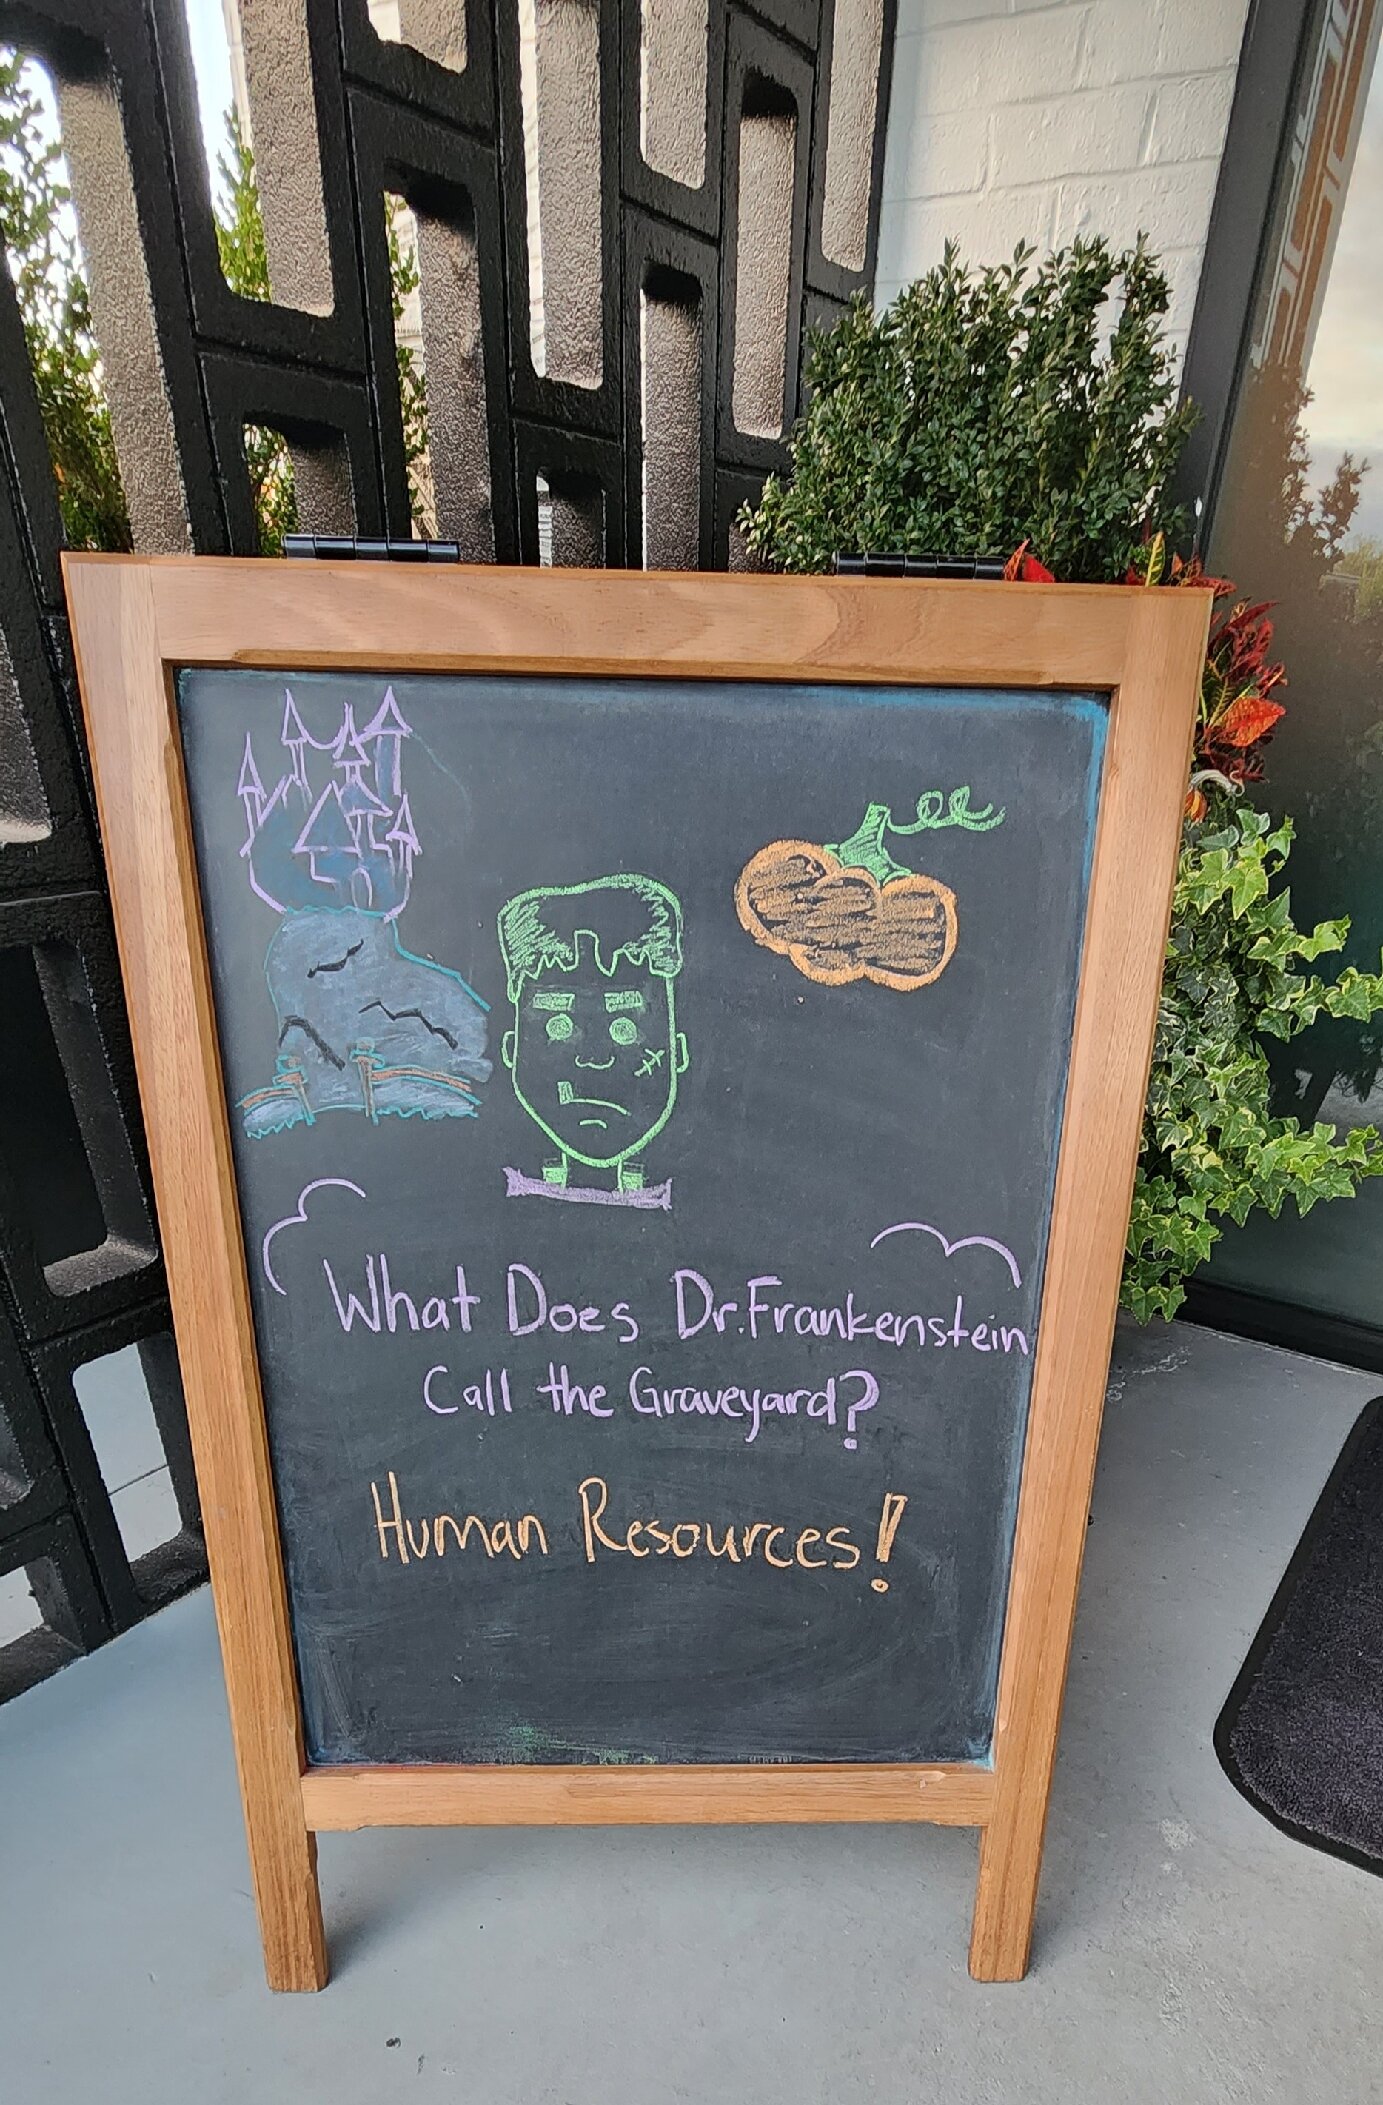 What Does Dr.Frankenstein
Call the Graveyard?
Human Resources!